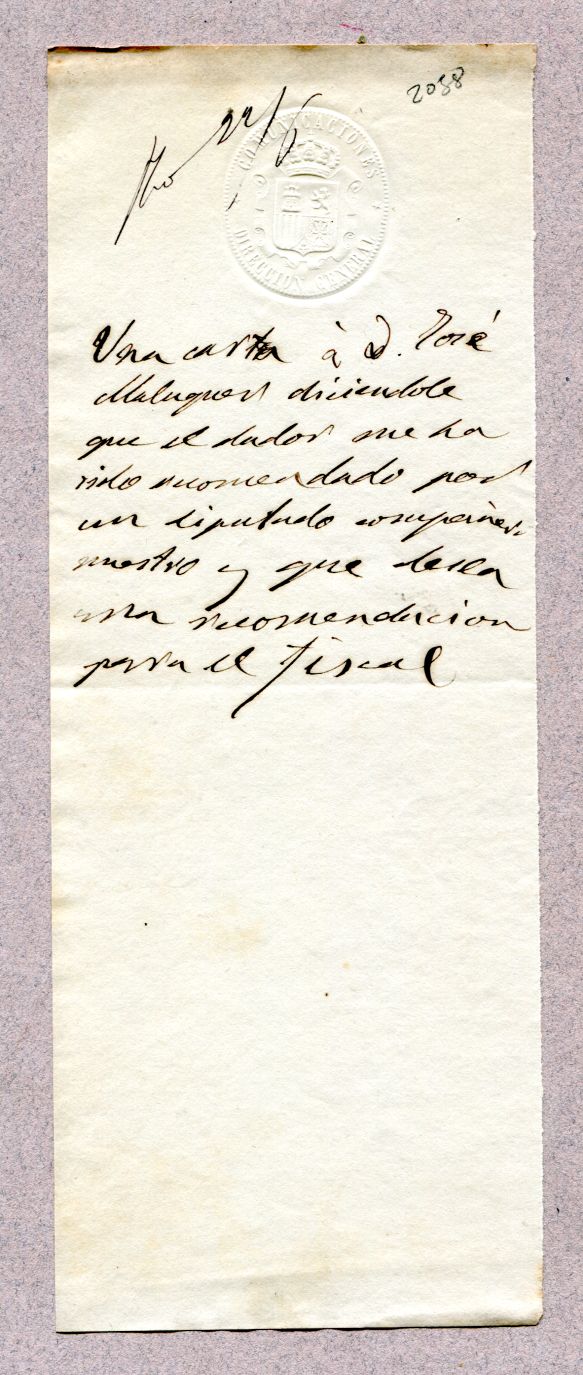 2088
22/6
COMUNICACIONES
DIRECCION GENERAL
Una carta à D. José
Maluquer diciendole
que el dador me ha
sido recomendado por
un diputado compañero
nuestro y que desea
una recomendacion
para el fiscal